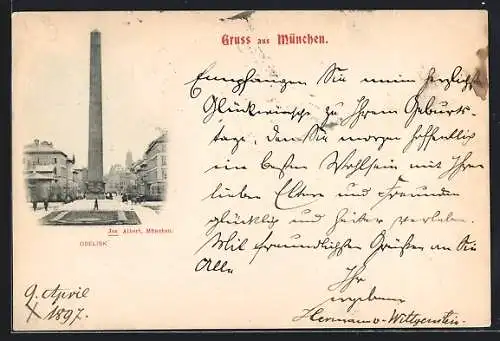 Gruss aus München.
Empfangen Sie meine herzlichste
Glückwünsche zu Ihrem Geburts-
tage, den Sie morgen hoffentlich
im besten Wohlsein mit Ihren
lieben Eltern und Freunden
glücklich und heiter verleben.
Mit freundlichsten Grüßen an Sie
Alle
Ihr
ergebener
Hermann v. Wittgenstein.
Jos. Albert, München.
OBELISK
9. April
1897.